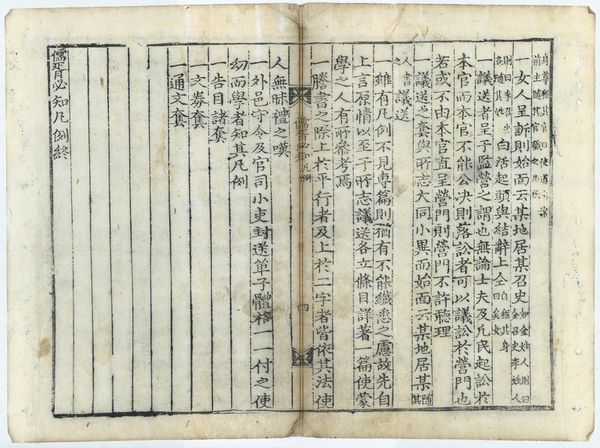 一女人呈訴則始面云某地居某召史
白活起頭與結辭上仝
一議送者呈于監營之謂也無論士夫及凡民起訟於
本官而本官不能公決則落訟者可以議訟於營門也
若或不由本官直呈營門則營門不許聽理
議送之套與所志大同小異而始面云某地居某
人書議送
一雖有凡例不見專篇則猶有不能纖悉之慮故先自
上言原情以至于所志議送各立條目詳著一篇使蒙
學之人有所參考焉
儒胥必知 凡例
四
一謄書之際上於平行者及上於二字者皆依其法使
人無昧禮之嘆
一外邑守令及官司小吏封送單子體格一一付之使
幼而學者知其凡例
一告目諸套
一文券套
一通文套
儒胥必知凡例終